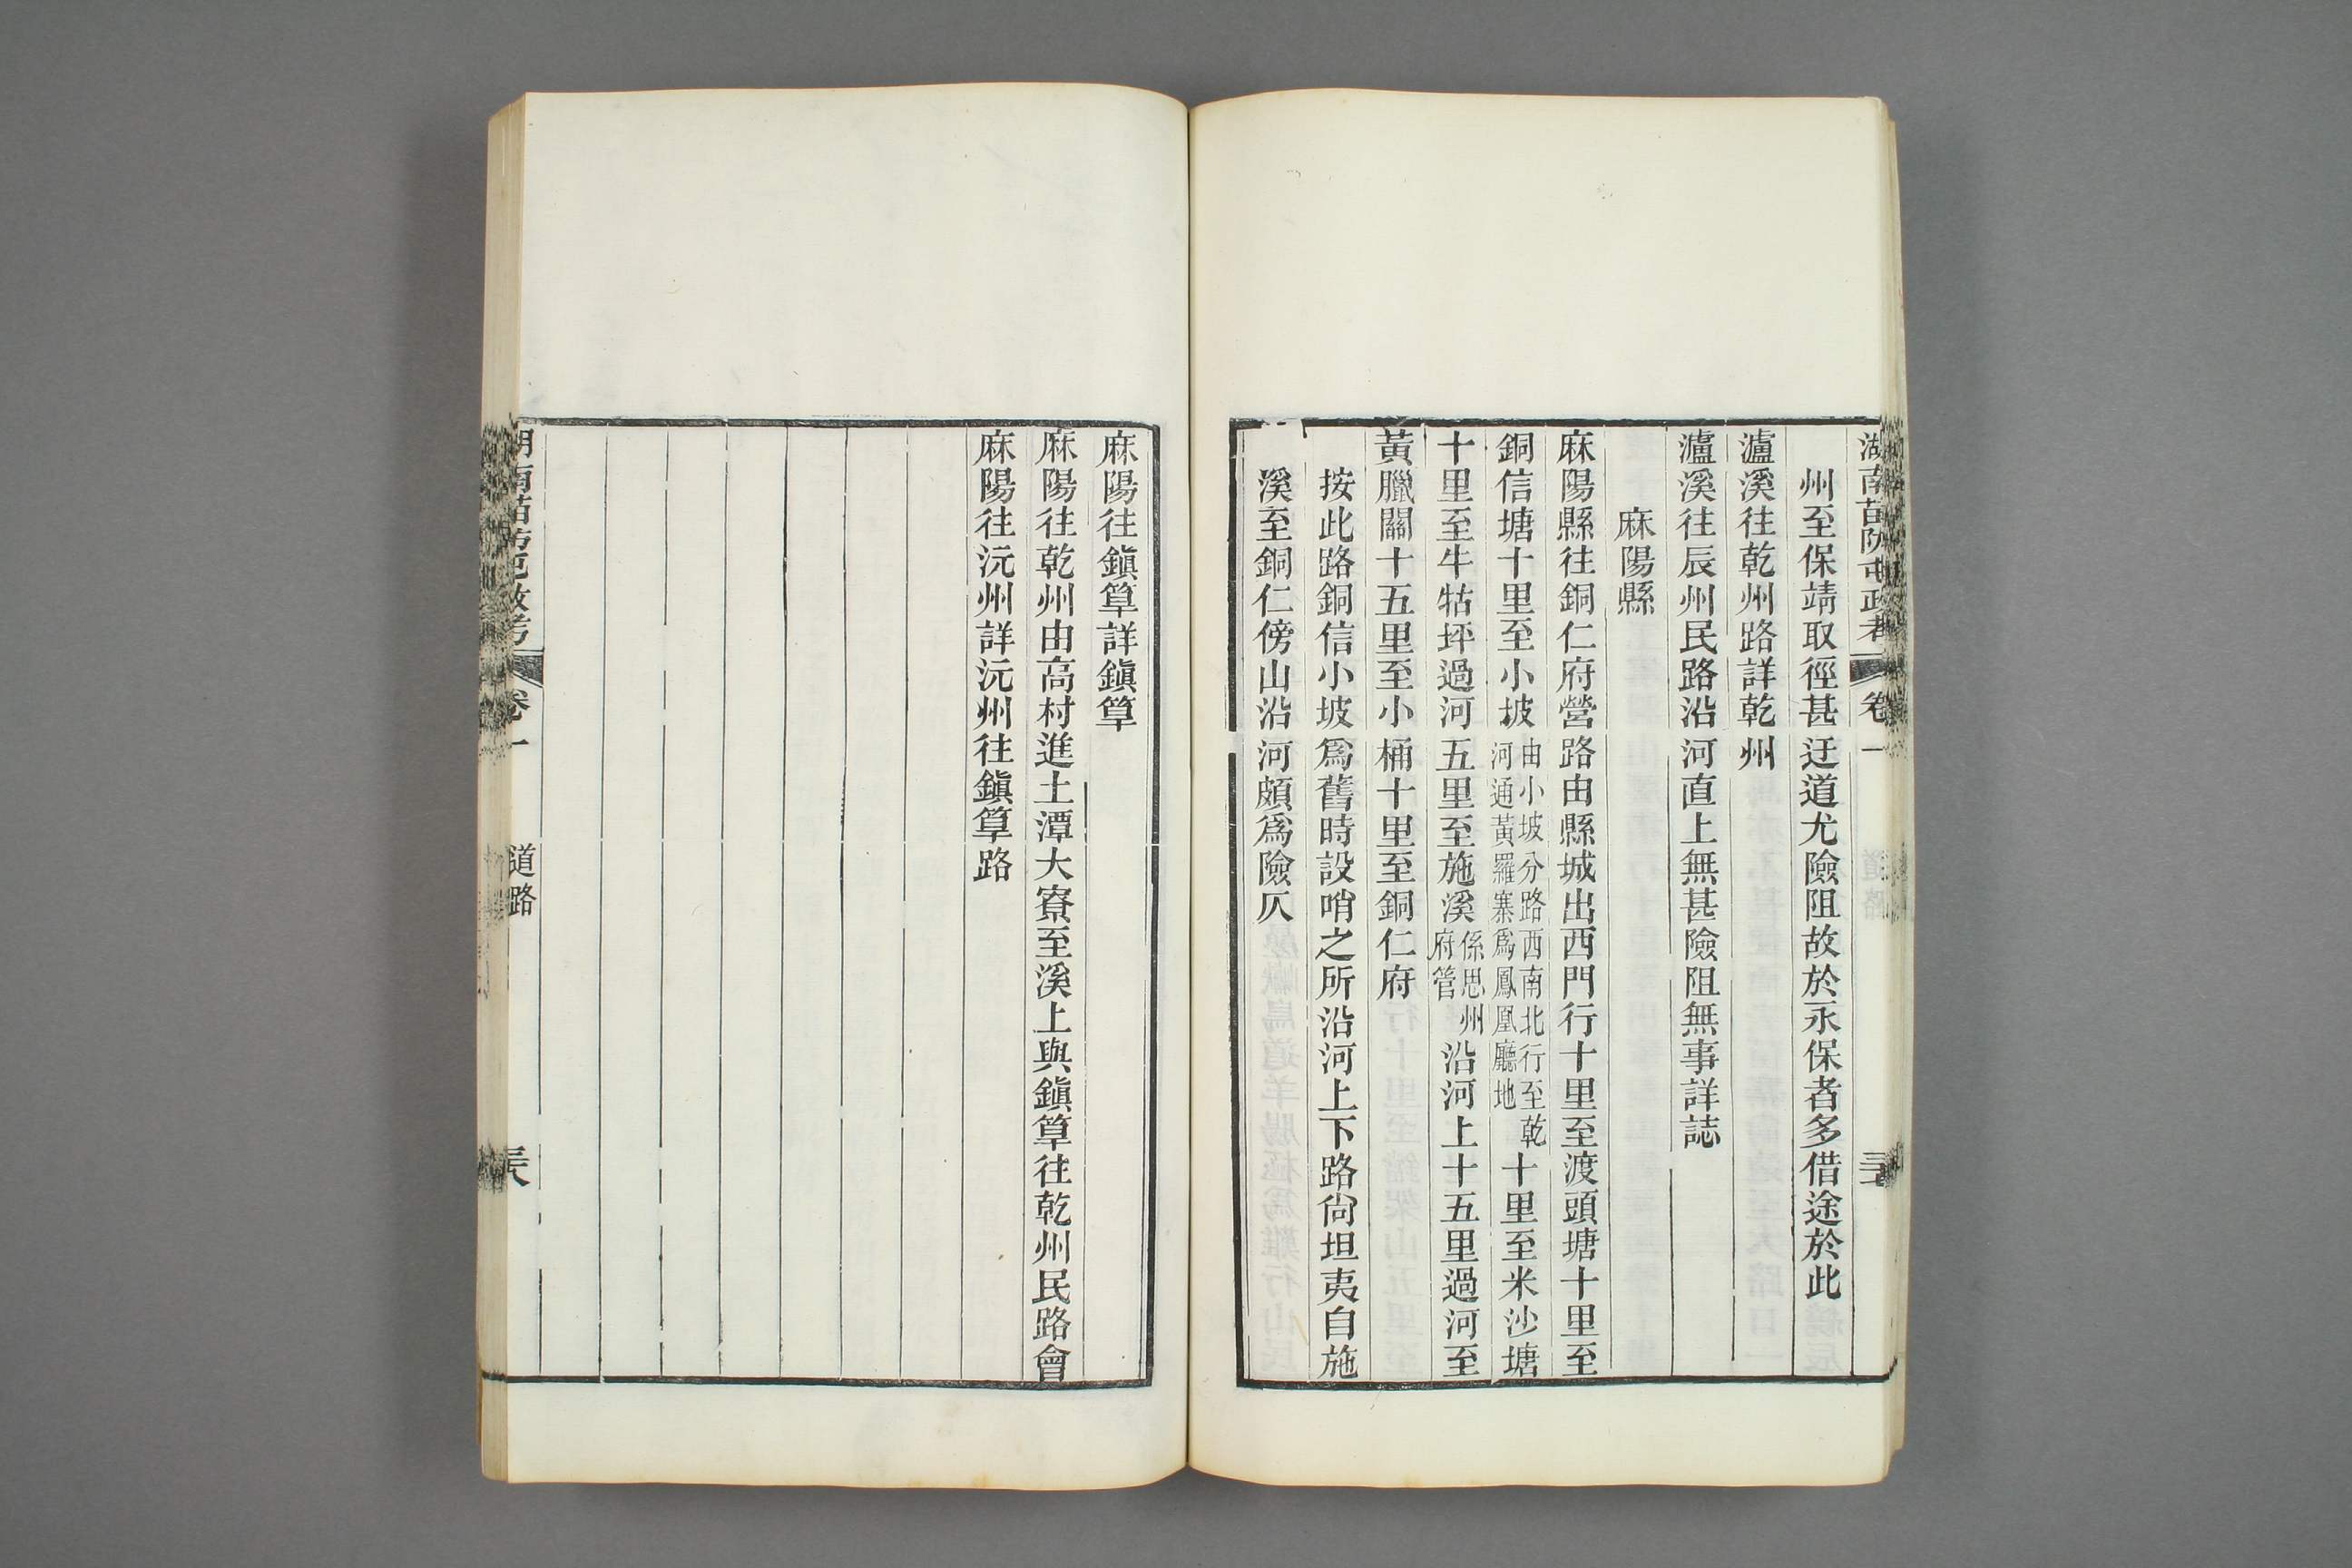 湖南苗防屯政考 卷一
州至保靖取徑甚迂道尤險阻故於永保者多借途於此
瀘溪往乾州路詳乾州
瀘溪往辰州民路沿河直上無甚險阻無事詳誌
麻陽縣
麻陽縣往銅仁府營路由縣城出西門行十里至渡頭塘十里至
銅信塘十里至小坡由小坡分路西南北行至乾河通黃羅寨爲鳳凰廳地十里至米沙塘
十里至牛牯坪過河五里至施溪係思州府管沿河上十五里過河至
黃臘關十五里至小桶十里至銅仁府
按此路銅信小坡爲舊時設哨之所沿河上下路尙坦夷自施
溪至銅仁傍山沿河頗爲險仄
麻陽往鎭筸詳鎭筸
麻陽往乾州由高村進土潭大寮至溪上與鎭筸往乾州民路會
麻陽往沅州詳沅州往鎭筸路
湖南苗防屯政考 卷一 道路